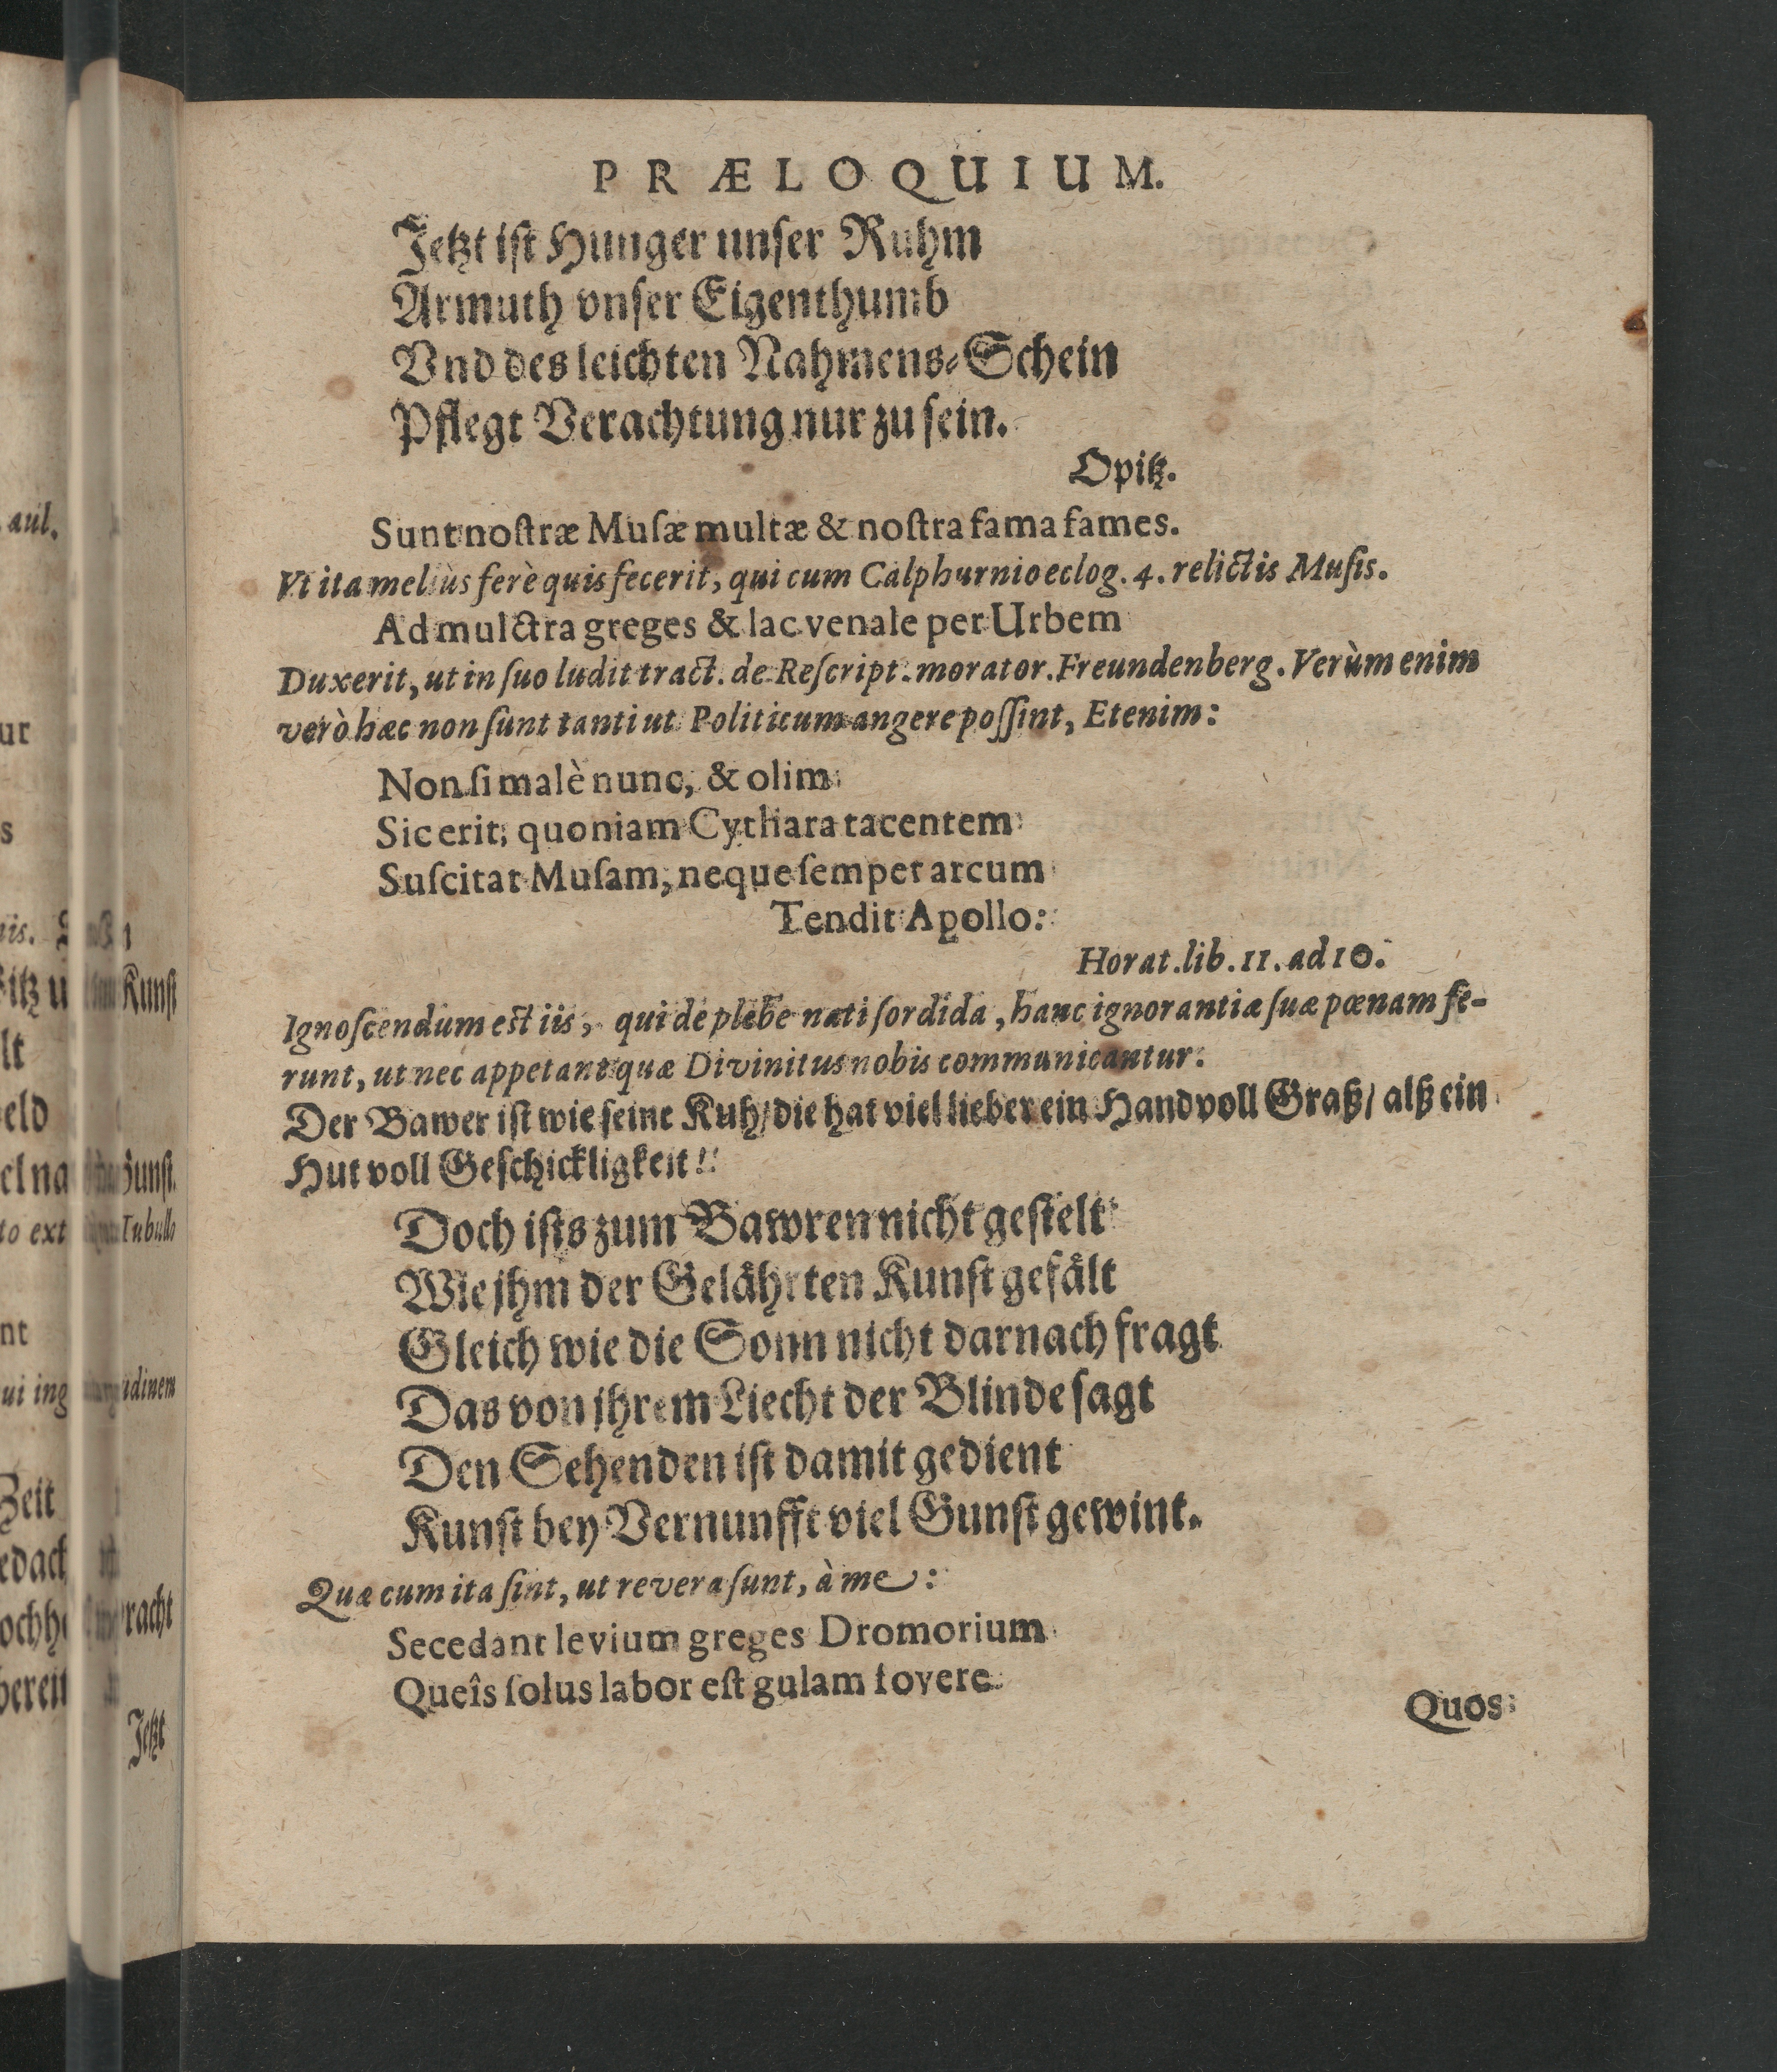 PRÆLOQUIUM.
Jetzt iſt Hunger unſer Ruhm
Armuth vnſer Eigenthumb
Vnd des leichten Nahmens-Schein
Pflegt Verachtung nur zu ſein.
Opitz.
Sunt noſtræ Muſæ multæ & noſtra fama fames.
Vt ita meliùs ferè quis fecerit, qui cum Calphurnio eclog. 4. relictis Muſis.
Ad mulctra greges & lac venale per Urbem
Duxerit, ut in ſuo ludit tract. de Reſcript. morator. Freundenberg. Verùm enim
verò hæc non ſunt tanti ut Politicum angere poſſint, Etenim:
Non ſi malè nunc, & olim
Sic erit, quoniam Cythara tacentem
Suſcitat Muſam, neque ſemper arcum
Tendit Apollo:
Horat. lib. 11. ad 10.
Ignoſcendum eſt iis, qui de plebe nati ſordida, hanc ignorantiæ ſuæ pœnam fe-
runt, ut nec appetant quæ Divinitus nobis communicantur.
Der Bawer iſt wie ſeine Kuh/ die hat viel lieber ein Handvoll Graß/ alß ein
Hut voll Geſchickligkeit!!
Doch iſts zum Bawren nicht geſtelt
Wie jhm der Gelährten Kunſt gefält
Gleich wie die Sonn nicht darnach fragt
Das von jhrem Liecht der Blinde ſagt
Den Sehenden iſt damit gedient
Kunſt bey Vernunfft viel Gunſt gewint.
Quæ cum ita ſint, ut revera ſunt, à me:
Secedant levium greges Dromorium
Queîs ſolus labor eſt gulam fovere
Quos